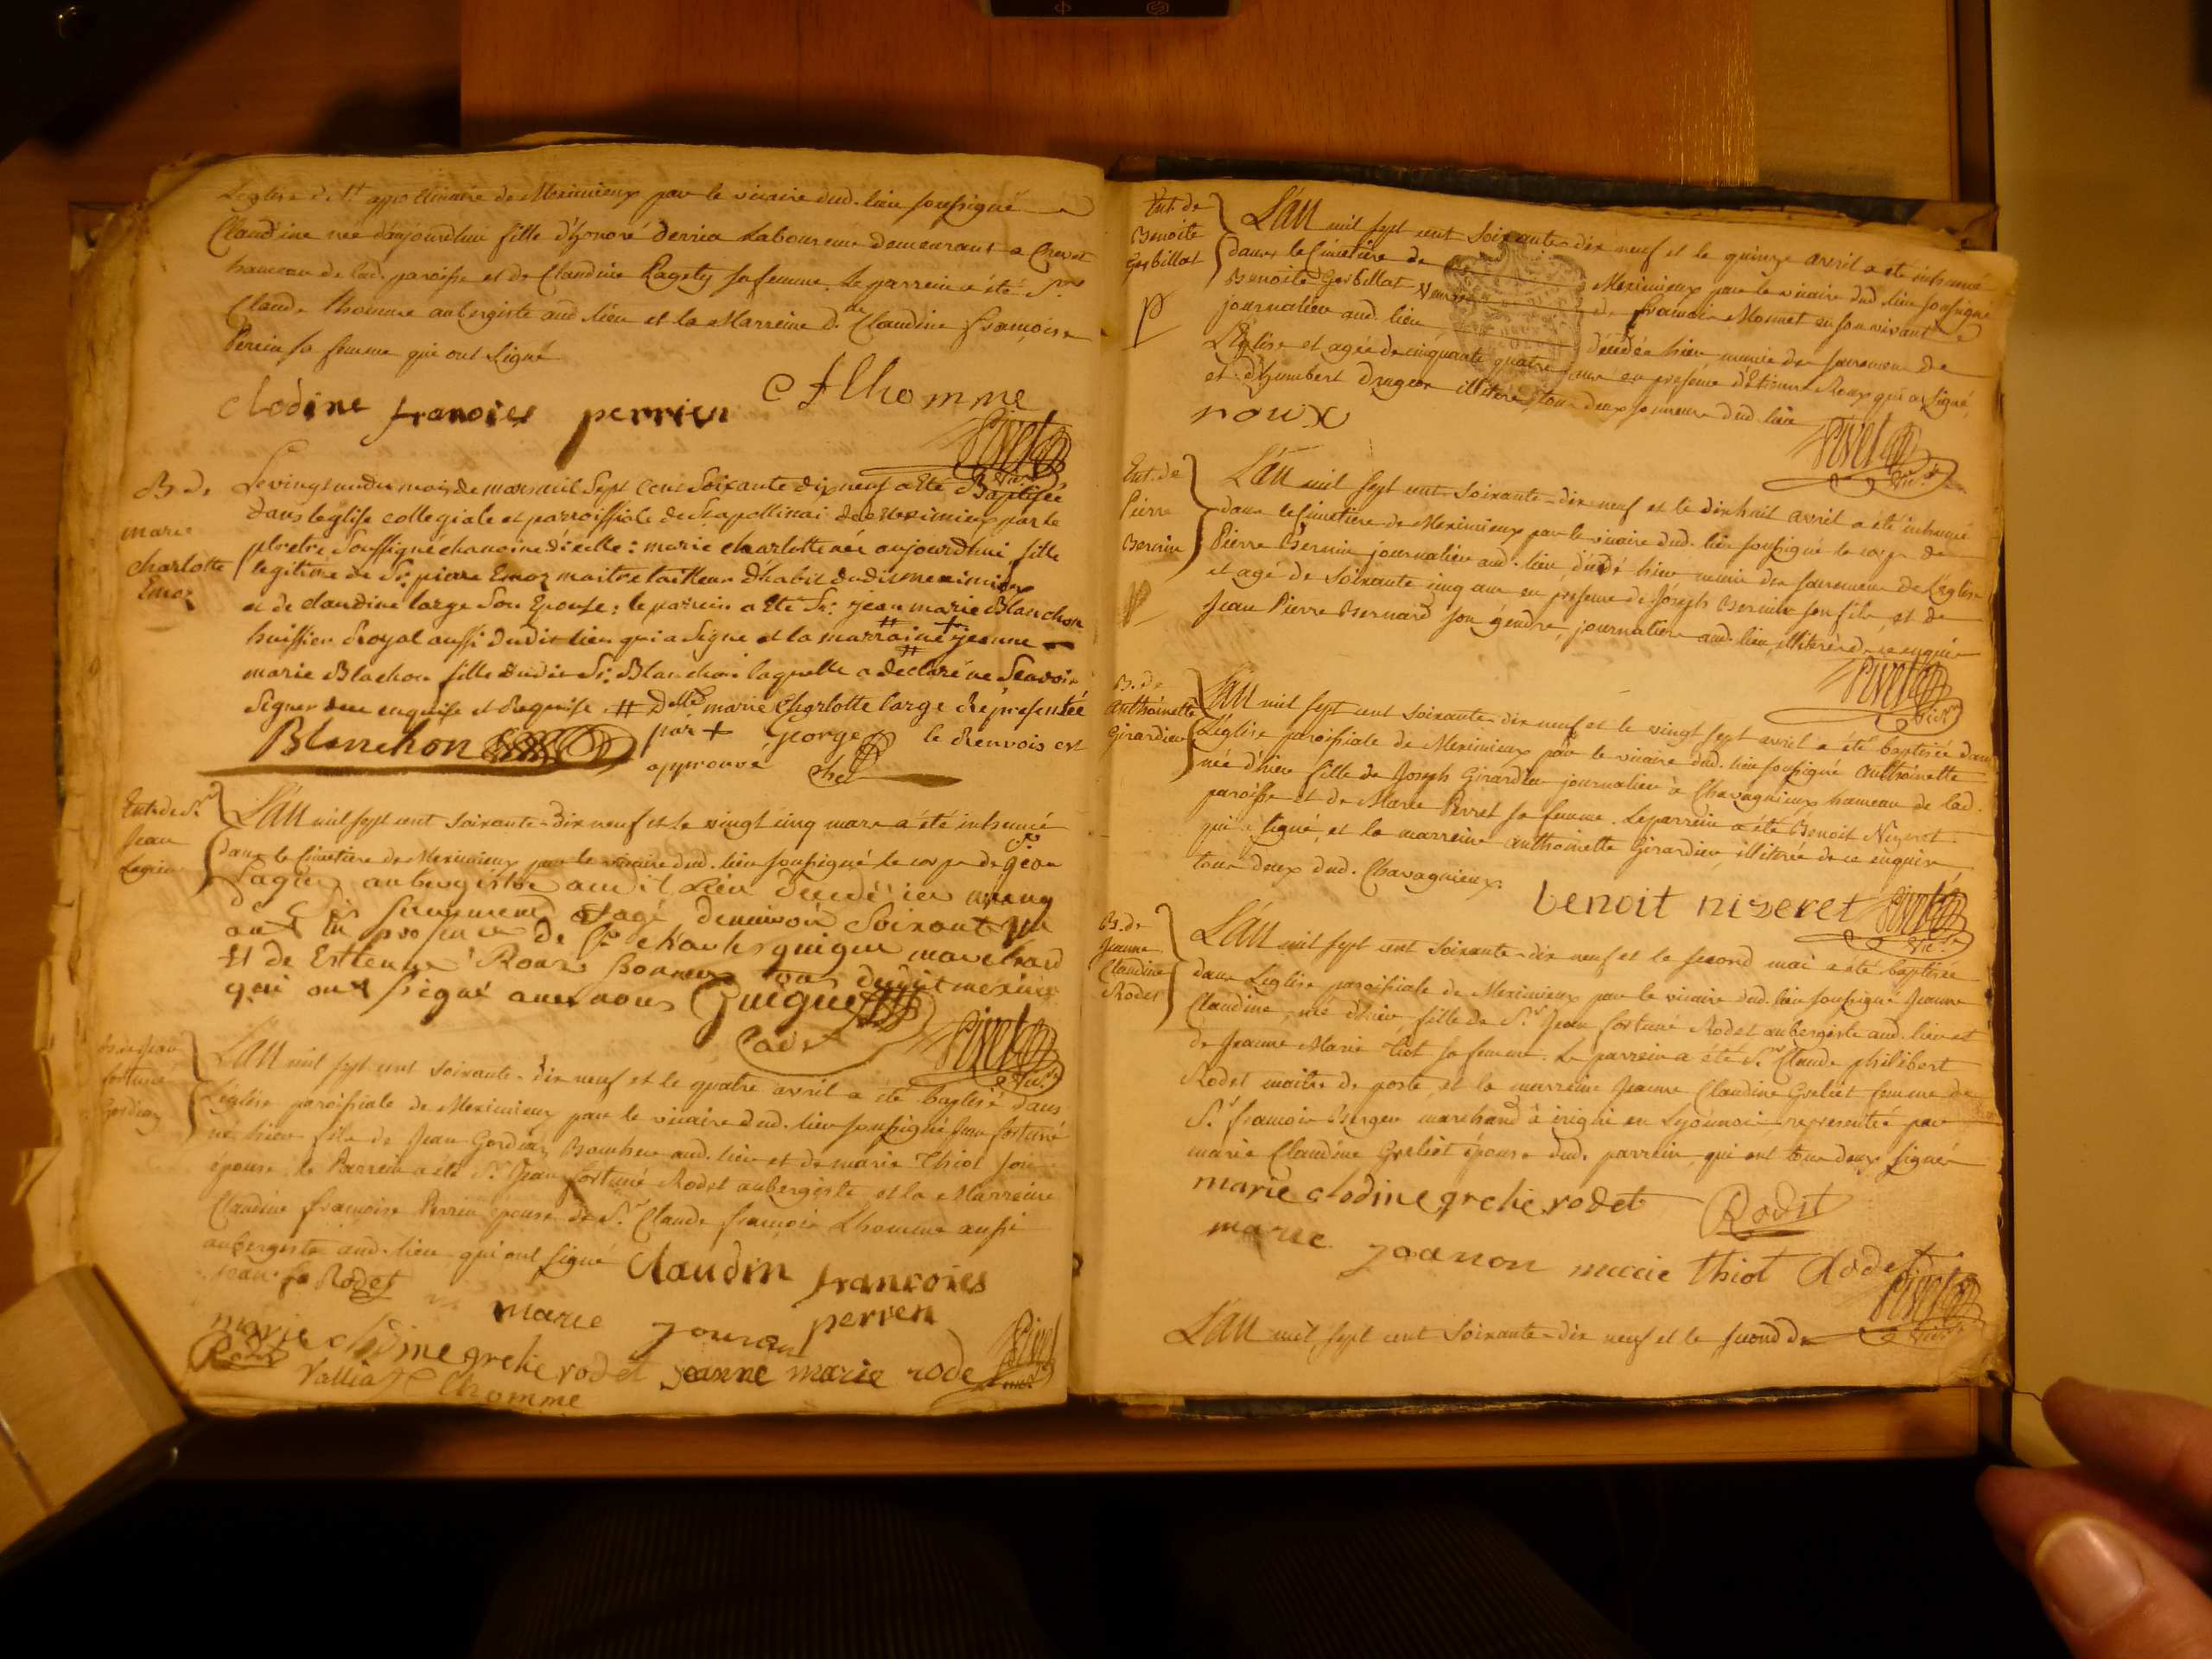 L'eglise de St. appollinaire de Meximieux par le vicaire dud. lieu soussigné
Claudine née d'aujourdhui fille d'honoré derriea Laboureur demeurant a
hameau de lad. paroisse et de Claudine sa femme. Le parrein a été Sr.
Claude Lhomme aubergiste aud. lieu et la Marreine d. Claudine françoise
Perrin sa femme qui ont signé
Clodine francoies perrien
C f lhomme
Pivet
vic.
B. de
marie
charlotte
Emoz
Le vingt un du mois de mars mil sept cent soixante dix neuf a Eté Baptisée
dans leglise collegiale et parroissiale de st apollinai de Meximieux par le
pbretre soussigné chanoine d'icelle : marie charlotte née aujourdhui fille
legitime de Sr. pierre Emoz maitre tailleur dhabit dudit meximieux
et de claudine large son Epouse : le parrein a Eté Sr. jean marie Blanchon
huissier Royal aussi dudit lieu qui a signé et la marraine jeanne
marie Blachon fille dudit Sr. Blanchon laquelle a declaré ne scavoir
signer de enquise et Requise # Delle marie Charlotte large Représentée
par + George le Renvois est
approuvé che
Blanchon
Ent. de Sr.
Jean
L'An mil sept cent soixante-dix neuf et le vingt cinq mars a été inhumé
dans le Cimetière de Meximieux par le vicaire dud. lieu soussigné le corps de Sr
aubergiste audit Lieu
sacrement agé denviron Soixante
en presence de Sr charles guigue marchand
Et de Estienne Roux tous dudit
qui ont signé avec nous Guigue
Pivet
Vic.
B. de Jean
fortuné
Gordiaz
L'An mil sept cent soixante-dix neuf et le quatre avril a été baptisé dans
L'église paroissiale de Meximieux par le vicaire dud. lieu soussigné jean fortuné
né hier fils de Jean Gordiaz Boucher aud. lieu et de marie Thiot son
épouse. le Parrein a été Sr. Jean fortuné Rodet aubergiste et la Marreine
Claudine françoise Perrin épouse de Sr. Claude françois Lhomme aussi
aubergiste aud. lieu qui ont signé
Claudin francoies
perrien
jean fo Rodet
marie
marie clodine grelie rodet jeanne marie rode
Rodet
Lhomme
Pivet
Ent. de
Benoite
Gerbillat
L'An mil sept cent soixante-dix neuf et le quinze avril a été inhumé
dans le Cimetière de Meximieux par le vicaire dud. lieu soussigné
Benoite Gerbillat veuve de françois Monnet en son vivant
journalier aud. lieu décédée hier munie des sacremens de
L'Eglise et agée de cinquante quatre ans en présence d'Etienne Roux qui a signé,
et d'Humbert Drugeon illiteré, tous deux sonneurs dud. lieu
roux
Pivet
Vic.
Ent. de
Pierre
Bernin
L'An mil sept cent soixante-dix neuf et le dix huit avril a été inhumé
dans le Cimetière de Meximieux par le vicaire dud. lieu soussigné le corps de
Pierre Bernin journalier aud. lieu, décédé hier muni des sacremens de L'église
et agé de soixante cinq ans en présence de Joseph Bernin son fils, et de
Jean Pierre Bernard son gendre, journaliers aud. lieu, illiterés de ce enquis
Pivet
Vic.
B. de
Anthoinette
Girardieu
L'An mil sept cent soixante-dix neuf et le vingt sept avril a été baptisée dans
L'église paroissiale de Meximieux par le vicaire dud. lieu soussigné Anthoinette
née d'hier fille de Joseph Girardieu journalier à Chavagnieux hameau de lad.
paroisse et de Marie Perret sa femme. Le parrein a été Benoit Nizeret
qui a signé, et la marreine anthoinette Girardieu illiterée de ce enquise
tous deux dud. Chavagnieux.
benoit nizeret
Pivet
Vic.
B. de
Jeanne
Claudine
Rodet
L'An mil sept cent soixante-dix neuf et le second mai a été baptisée
dans L'église paroissiale de Meximieux par le vicaire dud. lieu soussigné Jeanne
Claudine, née d'hier, fille de Sr. Jean fortuné Rodet aubergiste aud. lieu et
de Jeanne Marie Tiot sa femme. Le parrein a été Sr. Claude philibert
Rodet maître de poste, et la marreine Jeanne Claudine Greliet femme de
Sr. françois Berger marchand à irigni en Lyonnois, représentée par
marie Claudine Greliet épouse dud. parrein, qui ont tous deux signé
marie clodine grelie rodet
Rodet
marie joanon marie thiot Rodet
Pivet
L'An mil sept cent soixante-dix neuf et le second de